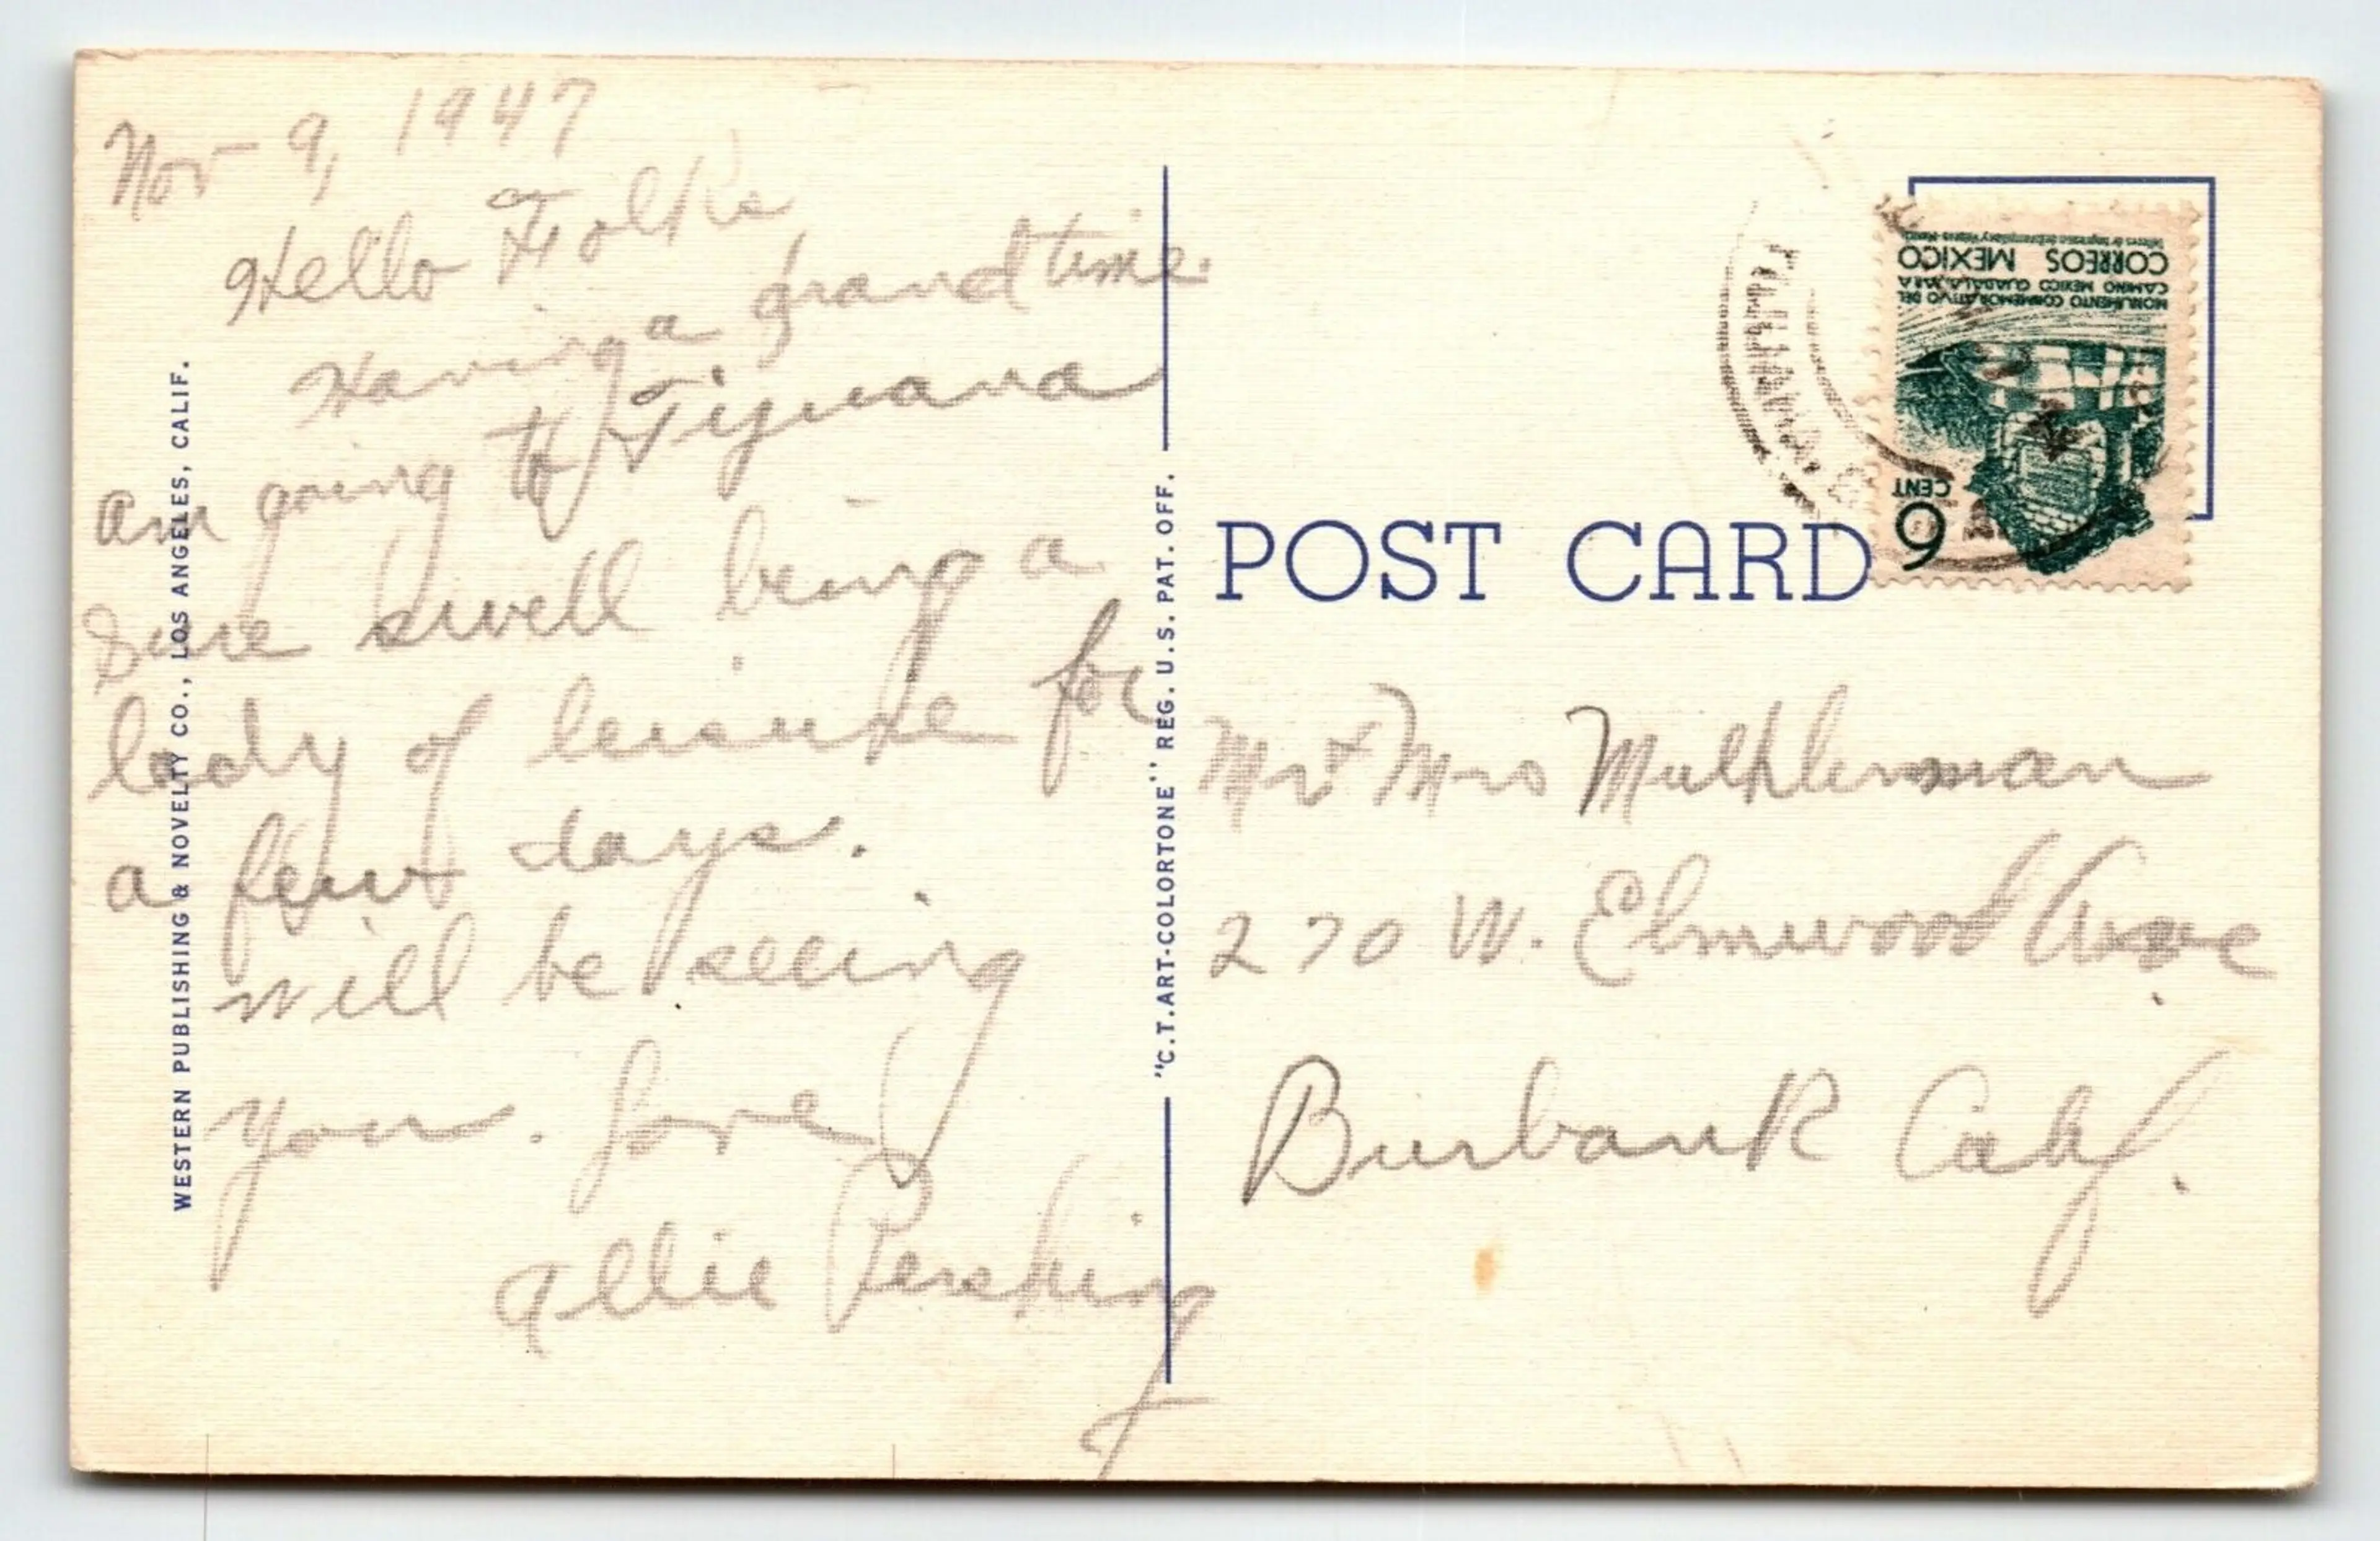 Nov 9, 1947
Hello Folks
Having a grand time.
am going to Tijuana
Sure swell being a
lady of leisure for
a few days.
will be seeing
you. Love
Allie Pershing
WESTERN PUBLISHING & NOVELTY CO., LOS ANGELES, CALIF.
"C.T.ART-COLORTONE" REG. U.S. PAT. OFF.
POST CARD
Mr & Mrs
270 W. Elmwood Ave
Burbank Calif.
6
CENT
MONUMENTO CONMEMORATIVO DEL
CAMINO MEXICO GUADALAJARA
CORREOS MEXICO